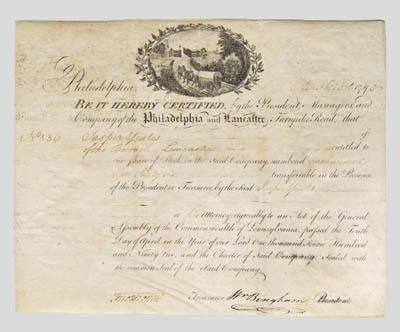 Philadelphia, 1795
BE IT HEREBY CERTIFIED, by the President, Managers, and
Company of the Philadelphia and Lancaster Turnpike Road, that
Jasper Yeates of
of the Borough of Lancaster is entitled to
one share of Stock in the Said Company, numbered
transferable in the Presence
of the President or Treasurer, by the Said Jasper Yeates
or his Attorney agreeably to an Act of the General
Assembly of the Commonwealth of Pennsylvania, passed the Ninth
Day of April, in the Year of our Lord One thousand Seven Hundred
and Ninety two, and the Charter of Said Company. Sealed with
the common Seal of the Said Company.
Treasurer Wm Bingham President